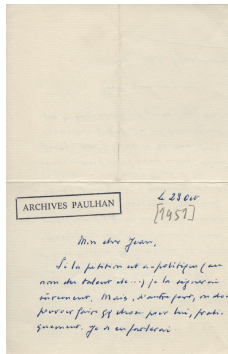 ARCHIVES PAULHAN
Le 29 Oct
[1951]
Mon cher Jean,
Si la petition est a-politique (au
nom du talent de ...) je la signerai
sûrement. Mais, d'autre part, on doit
pouvoir faire qq chose pour lui, prati-
quement. Je n'en parlerai